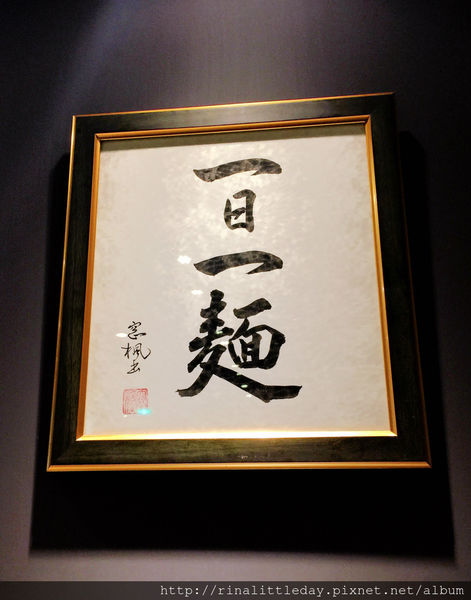 一日一麵
窓楓書
http://rinalittleday.pixnet.net/album